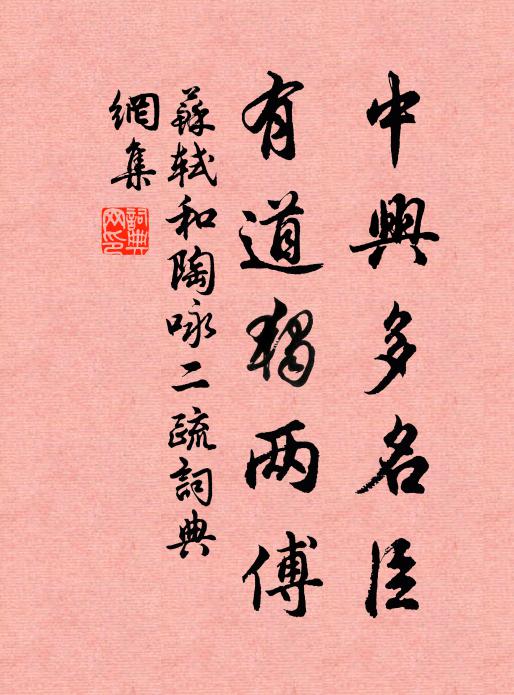 中興多名臣
有道獨两傅
蘇軾和陶咏二疏詞典
網集
詞典網印